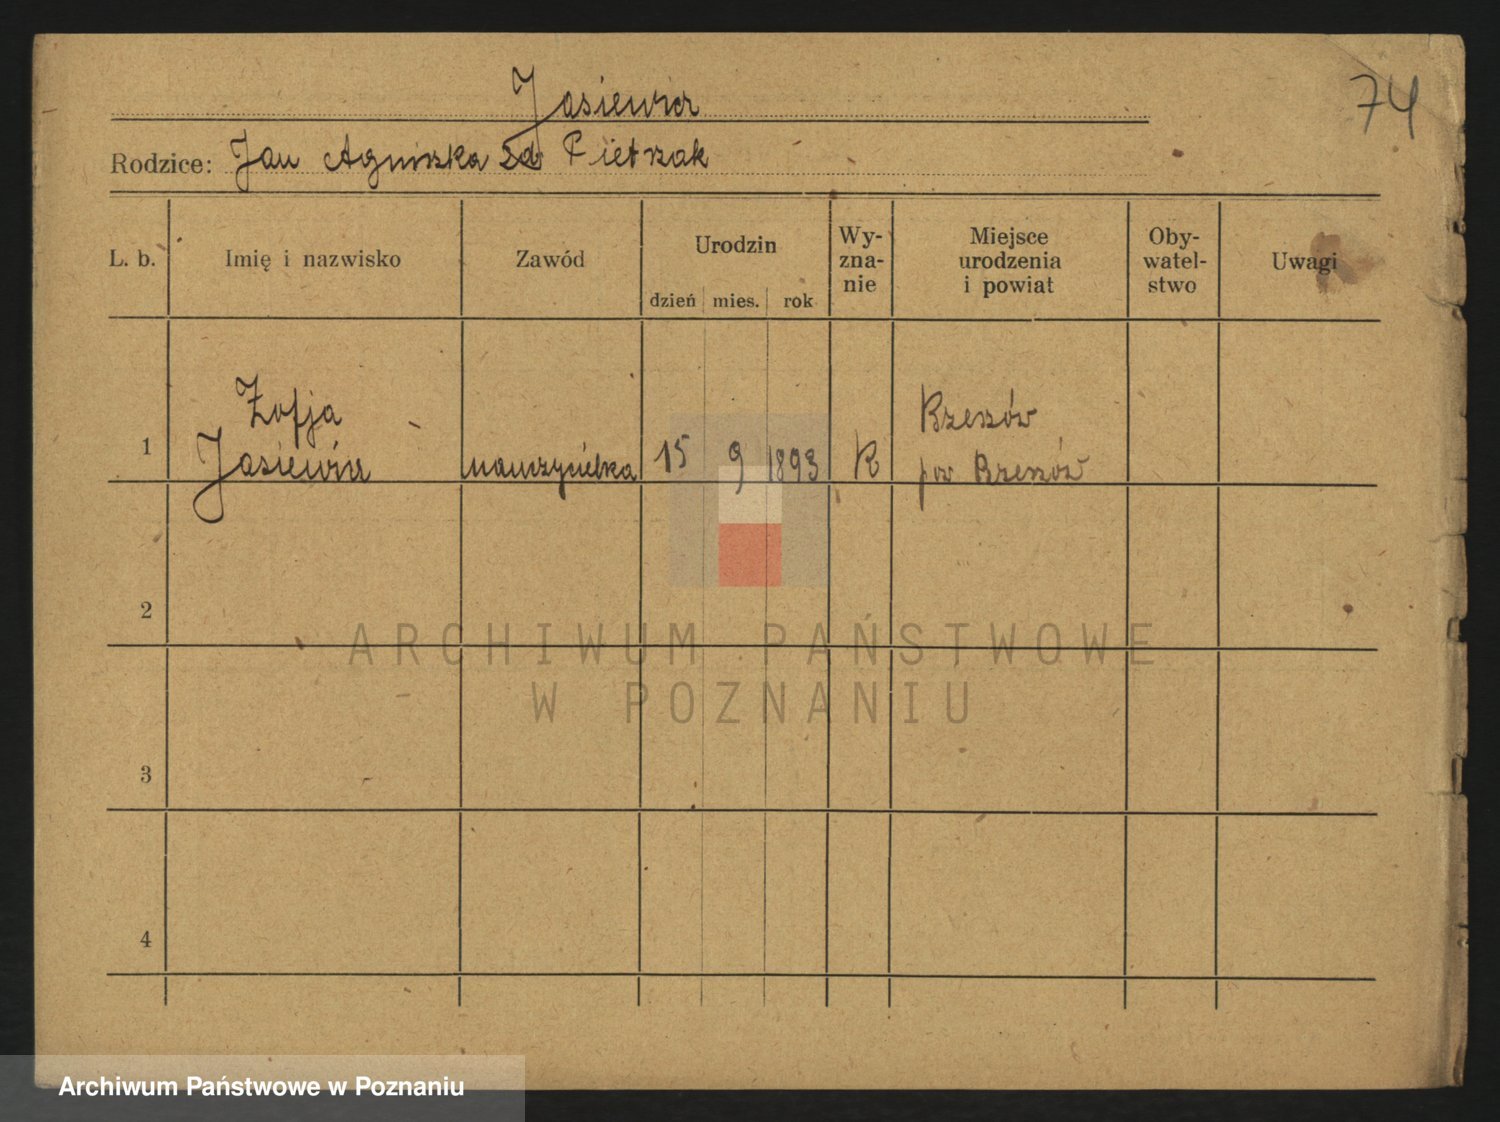 74
Jasiewicz
Rodzice: Jan Agnieszka zd Pietrzak
L. b. Imię i nazwisko Zawód Urodzin Wy-zna-nie Miejsce urodzenia i powiat Oby-watel-stwo Uwagi
dzień mies. rok
Zofja Rzeszów
1 Jasiewicz nauczycielka 15 9 1893 R pow Rzeszów
2
ARCHIWUM PAŃSTWOWE
W POZNANIU
3
4
Archiwum Państwowe w Poznaniu